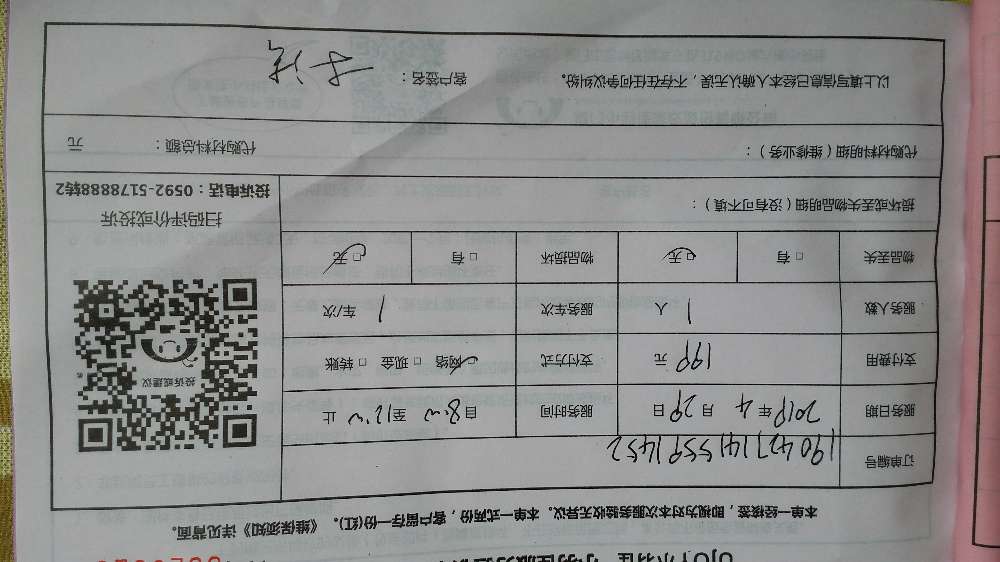 本单一经核签，即视为对本次服务验收无异议。本单一式两份，客户留存一份(红)。《维保须知》详见背面。
订单编号 1904271415591452
服务日期 2019年4月29日 服务时间 自8:00至12:00止
支付费用 199元 支付方式 □网络 □现金 □转账
服务人数 1人 服务车次 1车/次
物品丢失 □有 □无 物品损坏 □有 □无
投诉或建议
扫码评价或投诉
投诉电话：0592-5178888转2
损坏或丢失物品明细（没有可不填）：
代购材料明细（维修业务）： 代购材料总额： 元
以上填写信息已经本人确认无误，不存在任何争议纠纷。 客户签名：